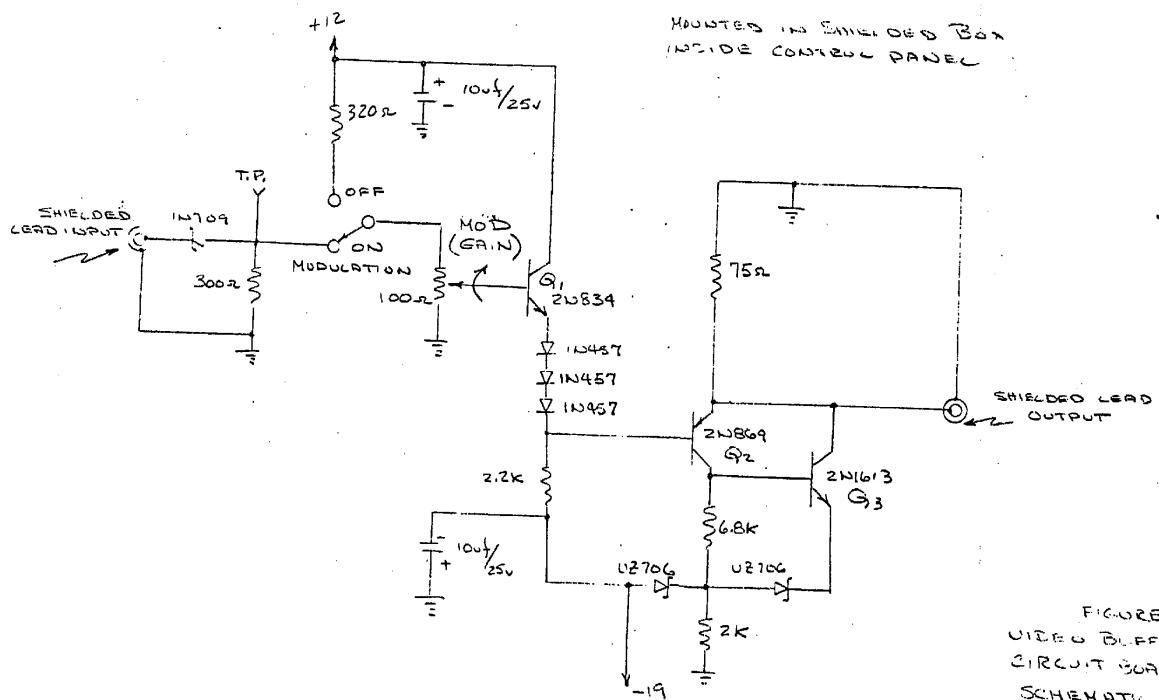 +12
MOUNTED IN SHIELDED BOX
INSIDE CONTROL PANEL
10uf/25v
+
-
320Ω
T.P.
OFF
SHIELDED
LEAD INPUT
1N709
MOD
(GAIN)
ON
MODULATION
300Ω
100Ω
Q1
2N834
75Ω
1N457
1N457
1N457
SHIELDED LEAD
OUTPUT
2N869
Q2
2N1613
Q3
2.2K
6.8K
-
+
10uf/
25v
UZ706
UZ706
2K
-19
FIGURE
VIDEO BUFF
CIRCUIT BOA
SCHEMATI